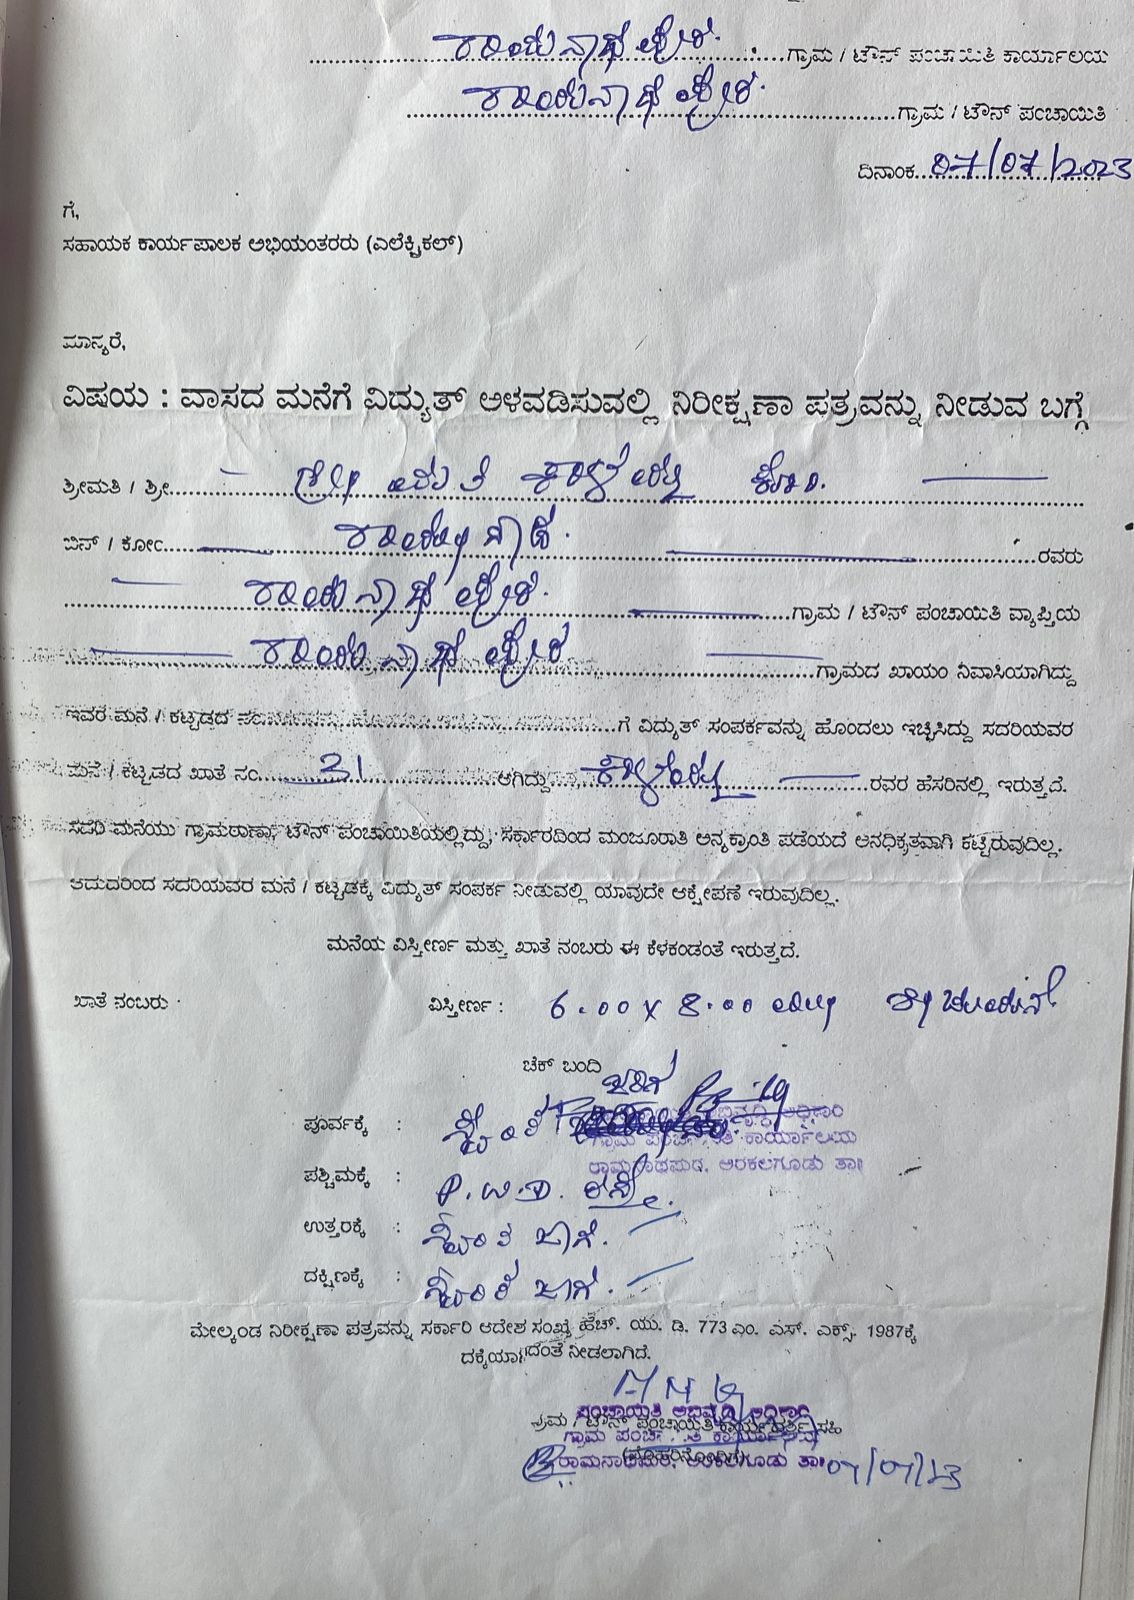 ರಾಮನಾಥಪುರ ಗ್ರಾಮ / ಟೌನ್ ಪಂಚಾಯಿತಿ ಕಾರ್ಯಾಲಯ
ರಾಮನಾಥಪುರ ಗ್ರಾಮ / ಟೌನ್ ಪಂಚಾಯಿತಿ
ದಿನಾಂಕ 07/07/2023
ಗೆ,
ಸಹಾಯಕ ಕಾರ್ಯಪಾಲಕ ಅಭಿಯಂತರರು (ಎಲೆಕ್ಟ್ರಿಕಲ್)
ಮಾನ್ಯರೆ,
ವಿಷಯ : ವಾಸದ ಮನೆಗೆ ವಿದ್ಯುತ್ ಅಳವಡಿಸುವಲ್ಲಿ ನಿರೀಕ್ಷಣಾ ಪತ್ರವನ್ನು ನೀಡುವ ಬಗ್ಗೆ
ಶ್ರೀಮತಿ / ಶ್ರೀ ಕೋಂ.
ಬಿನ್ / ಕೋಂ ರವರು
ರಾಮನಾಥಪುರ ಗ್ರಾಮ / ಟೌನ್ ಪಂಚಾಯಿತಿ ವ್ಯಾಪ್ತಿಯ
ರಾಮನಾಥಪುರ ಗ್ರಾಮದ ಖಾಯಂ ನಿವಾಸಿಯಾಗಿದ್ದು
ಇವರ ಮನೆ / ಕಟ್ಟಡದ ಗೆ ವಿದ್ಯುತ್ ಸಂಪರ್ಕವನ್ನು ಹೊಂದಲು ಇಚ್ಛಿಸಿದ್ದು ಸದರಿಯವರ
ಮನೆ / ಕಟ್ಟಡದ ಖಾತೆ ನಂ 31 ಆಗಿದ್ದು ರವರ ಹೆಸರಿನಲ್ಲಿ ಇರುತ್ತದೆ.
ಸದರಿ ಮನೆಯು ಗ್ರಾಮಠಾಣಾ, ಟೌನ್ ಪಂಚಾಯಿತಿಯಲ್ಲಿದ್ದು, ಸರ್ಕಾರದಿಂದ ಮಂಜೂರಾತಿ ಅನ್ಯಕ್ರಾಂತಿ ಪಡೆಯದೆ ಅನಧಿಕೃತವಾಗಿ ಕಟ್ಟಿರುವುದಿಲ್ಲ.
ಆದುದರಿಂದ ಸದರಿಯವರ ಮನೆ / ಕಟ್ಟಡಕ್ಕೆ ವಿದ್ಯುತ್ ಸಂಪರ್ಕ ನೀಡುವಲ್ಲಿ ಯಾವುದೇ ಆಕ್ಷೇಪಣೆ ಇರುವುದಿಲ್ಲ.
ಮನೆಯ ವಿಸ್ತೀರ್ಣ ಮತ್ತು ಖಾತೆ ನಂಬರು ಈ ಕೆಳಕಂಡಂತೆ ಇರುತ್ತದೆ.
ಖಾತೆ ನಂಬರು ವಿಸ್ತೀರ್ಣ : 6.00 x 8.00
ಚೆಕ್ ಬಂದಿ
ಪೂರ್ವಕ್ಕೆ : ಸ್ವಂತ ಜಾಗ
ಗ್ರಾಮ ಪಂಚಾಯಿತಿ ಕಾರ್ಯಾಲಯ
ರಾಮನಾಥಪುರ, ಅರಕಲಗೂಡು ತಾ॥
ಪಶ್ಚಿಮಕ್ಕೆ : P.W.D. ರಸ್ತೆ.
ಉತ್ತರಕ್ಕೆ : ಸ್ವಂತ ಜಾಗ.
ದಕ್ಷಿಣಕ್ಕೆ : ಸ್ವಂತ ಜಾಗ.
ಮೇಲ್ಕಂಡ ನಿರೀಕ್ಷಣಾ ಪತ್ರವನ್ನು ಸರ್ಕಾರಿ ಆದೇಶ ಸಂಖ್ಯೆ ಹೆಚ್. ಯು. ಡಿ. 773 ಎಂ. ಎಸ್. ಎಕ್ಸ್. 1987ಕ್ಕೆ
ದಕ್ಕೆಯಾಗದಂತೆ ನೀಡಲಾಗಿದೆ.
ಪಂಚಾಯತಿ ಅಭಿವೃದ್ಧಿ ಅಧಿಕಾರಿ
ಗ್ರಾಮ / ಟೌನ್ ಪಂಚಾಯಿತಿ ಕಾರ್ಯದರ್ಶಿ ಸಹಿ
ಗ್ರಾಮ ಪಂಚಾಯಿತಿ ಕಾರ್ಯಾಲಯ
(ಮೊಹರಿನೊಂದಿಗೆ)
ರಾಮನಾಥಪುರ, ಅರಕಲಗೂಡು ತಾ॥ 07/07/23